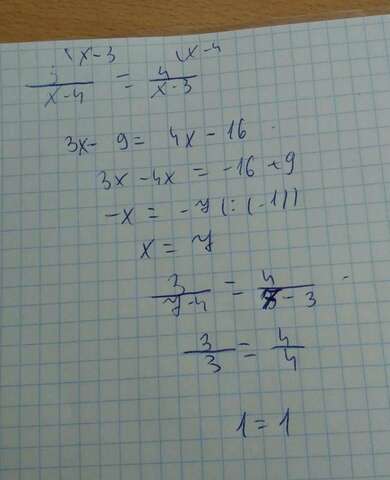 \x-3 \x-4
3/(x-4) = 4/(x-3)
3x - 9 = 4x - 16
3x - 4x = -16 + 9
-x = -7 (:(-1))
x = 7
3/(7-4) = 4/(7-3)
3/3 = 4/4
1 = 1